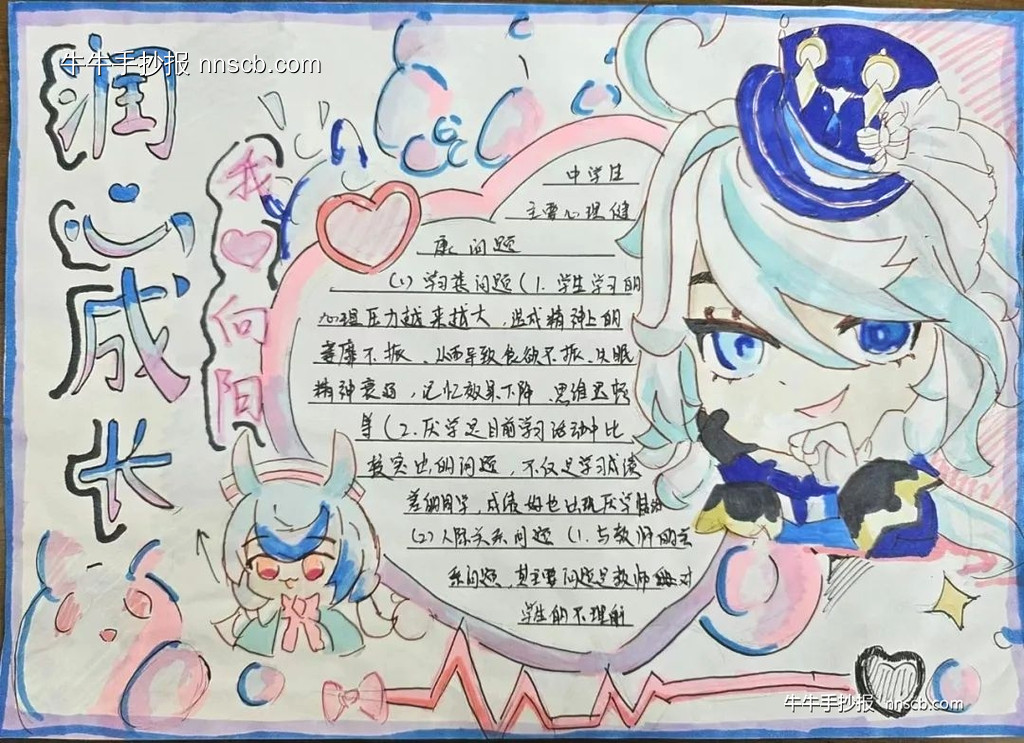 牛牛手抄报 nnscb.com
润心成长
我向阳
中学生
主要心理健
康问题
(1) 学习类问题(1.学生学习的
心理压力越来越大,造成精神上的
萎靡不振、从而导致食欲不振、失眠
精神衰弱,记忆效果下降、思维迟顿
等(2.厌学是目前学习活动中比
较突出的问题,不仅是学习成绩
差的同学,成绩好也出现厌学
(2)人际关系问题(1.与教师的关
系问题,其主要问题是教师 对
学生的不理解
牛牛手抄报 nnscb.com